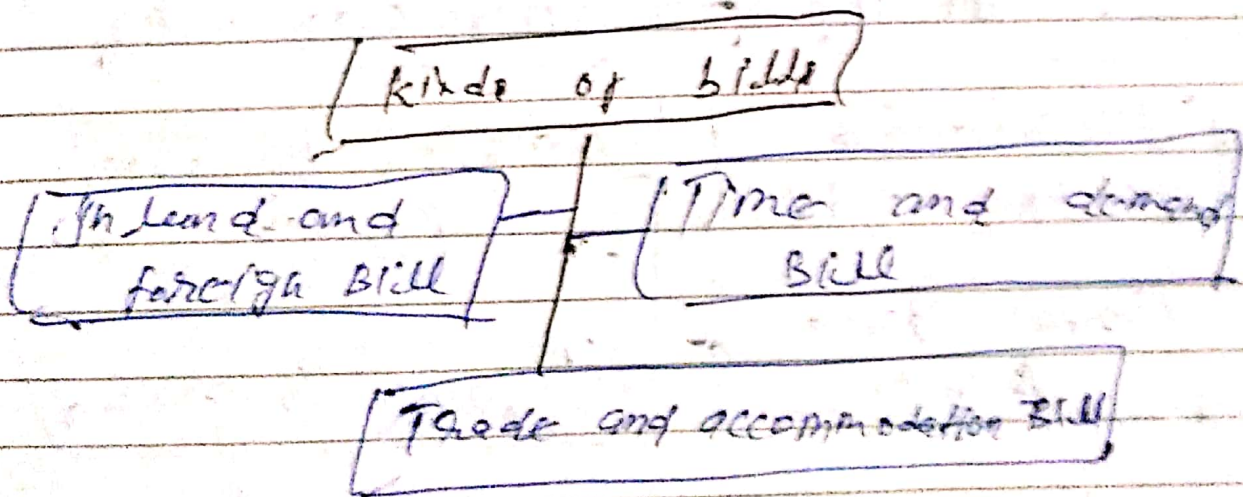 Kinds of bills
Inland and
foreign Bill
Time and demand
Bill
Trade and accommodation Bill